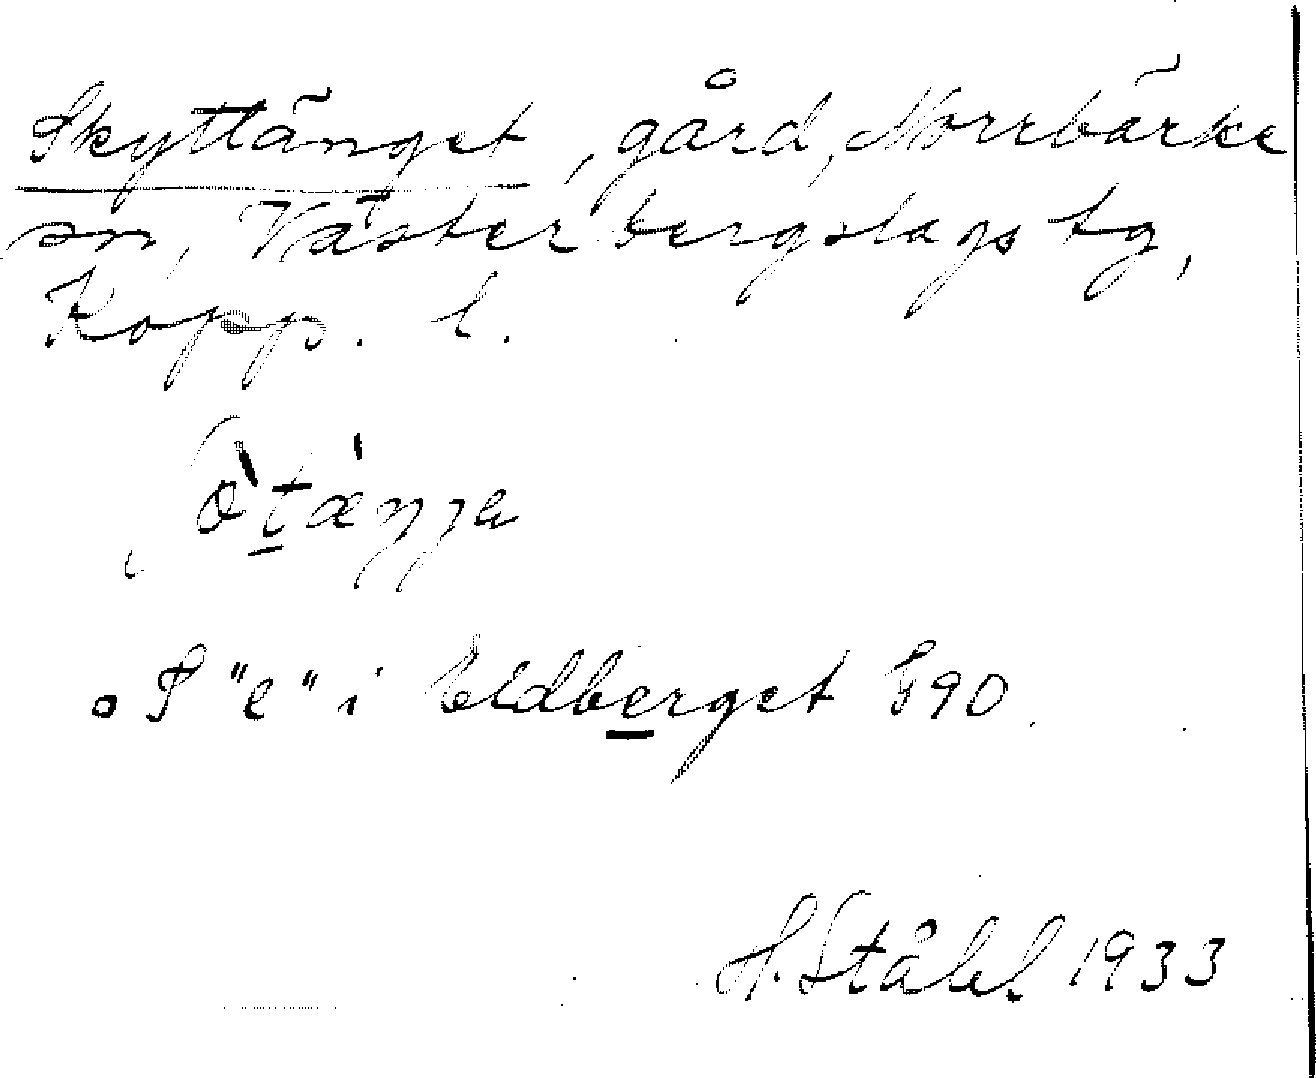 Skyttänget, gård, Norrbärke
sn, Västerbergslags tg,
Kopp. l.
S "e" i Eldberget G90.
H. Ståhl 1933